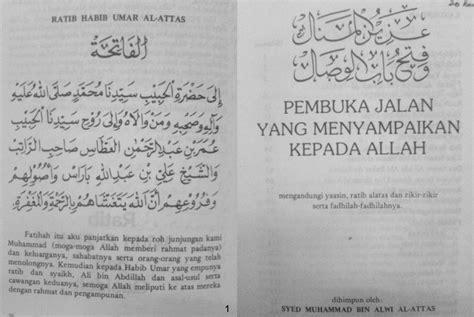 RATIB HABIB UMAR AL-ATTAS
الفاتحة
إِلَى حَضْرَةِ الْحَبِيْبِ سَيِّدِنَا مُحَمَّدٍ صَلَّى اللهُ عَلَيْهِ
وَآلِهِ وَصَحْبِهِ وَمَنْ وَالَاهُ وَإِلَى رُوْحِ سَيِّدِنَا الْحَبِيْبِ
عُمَرَ بْنِ عَبْدِ الرَّحْمٰنِ الْعَطَّاسِ صَاحِبِ الرَّاتِبِ
وَالشَّيْخِ عَلِيِّ بْنِ عَبْدِ اللهِ بَارَاسْ وَأُصُوْلِهِمْ
وَفُرُوْعِهِمْ أَنَّ اللهَ يَتَغَشَّاهُمْ بِالرَّحْمَةِ وَالْمَغْفِرَةِ.
Fatihah itu aku panjatkan kepada roh junjungan kami
Muhammad (moga-moga Allah memberi rahmat padanya)
dan keluarganya, sahabatnya serta orang-orang yang telah
menolongnya. Kemudian kepada Habib Umar yang empunya
ratib dan syaikh, Ali bin Abdillah dan asal-usul serta
cawangan keduanya, semoga Allah meliputi ke atas mereka
dengan rahmat dan pengampunan.
1
عزيز المنال
وفتح باب الوصال
PEMBUKA JALAN
YANG MENYAMPAIKAN
KEPADA ALLAH
mengandungi yaasin, ratib alatas dan zikir-zikir
serta fadhilah-fadhilahnya.
dihimpun oleh:
SYED MUHAMMAD BIN ALWI AL-ATTAS